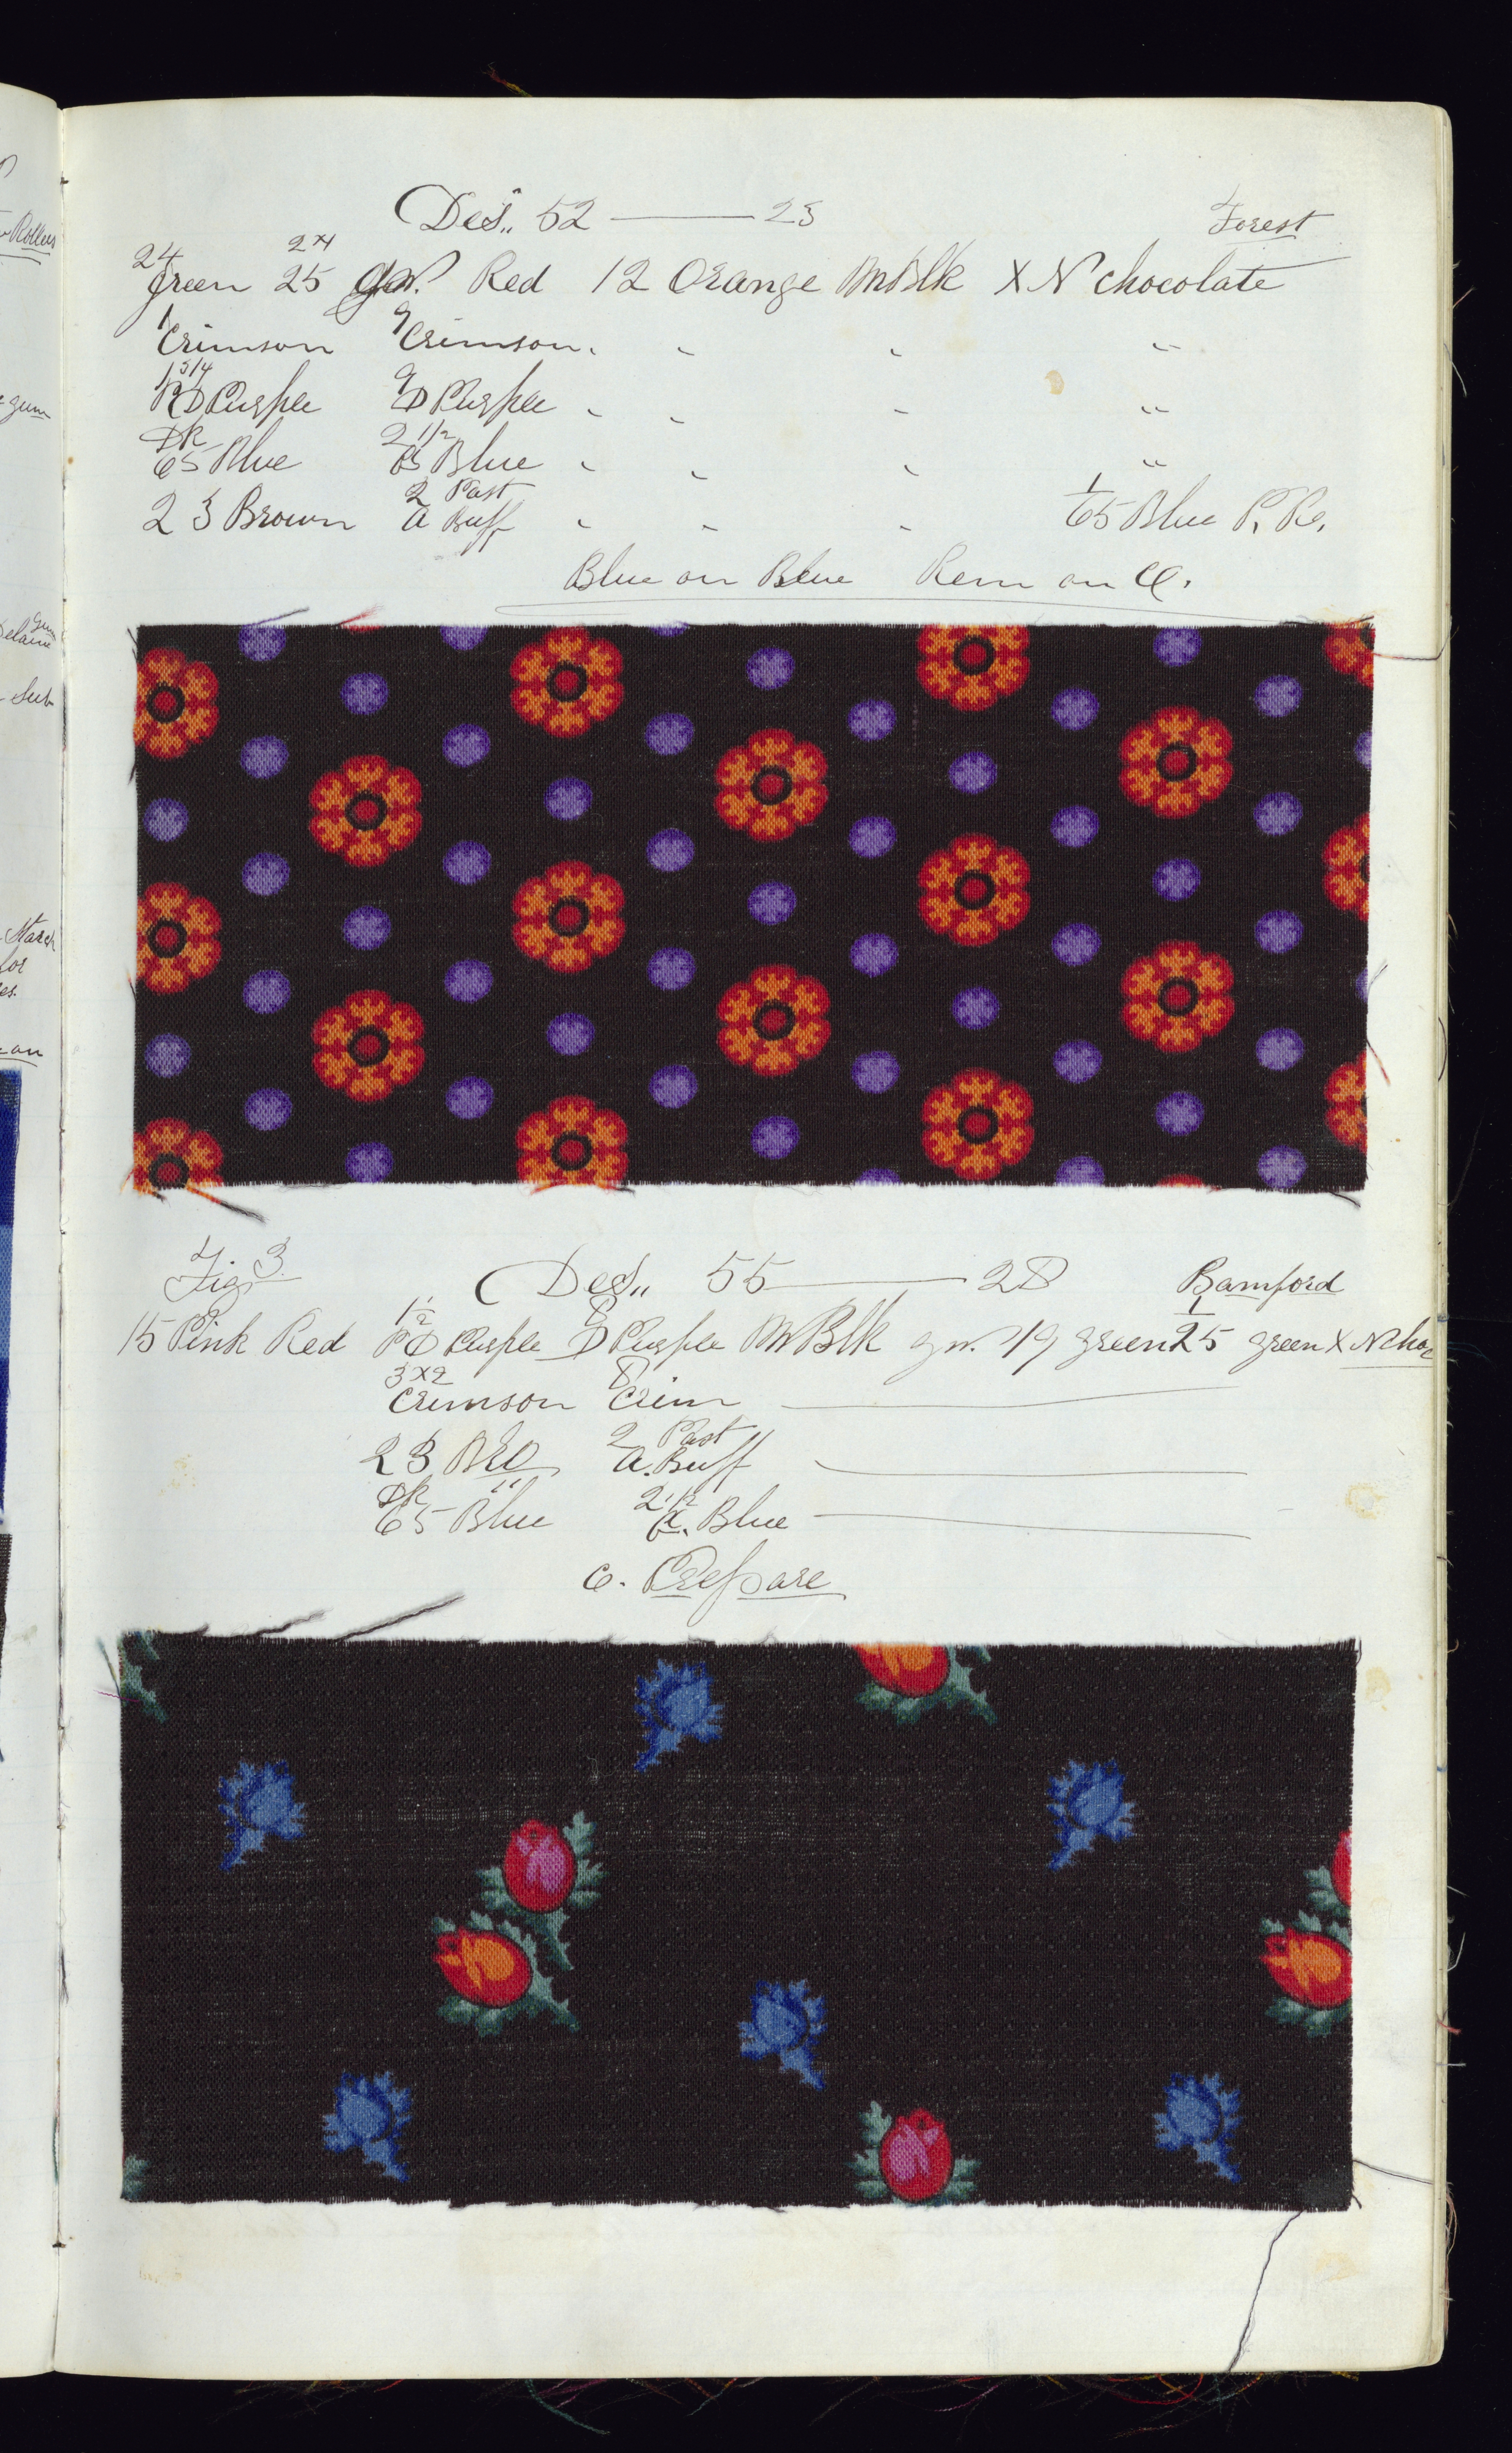 Des. 52 — 23 Forest
24 Green 2x4 25 gn. Red 12 Orange M Blk X N chocolate
1 Crimson 9 Crimson " " "
1 3/4 RD Purple 9 D Purple " " " "
DK 65 Blue 2 1/2 B Blue " " " "
2 3 Brown 2 Past A Buff " " " 1 65 Blue P. Re.
Blue on Blue Rem on C.
Fig 3. Des. 55 — 28 Bamford
15 Pink Red 1/2 PD Purple 8 D Purple M Blk gn. 19 green 1 25 green X N choc
3x2 Crimson 8 Crim
2 3 Bro 2 Past A. Buff
DK 65 Blue 2 1/2 A. Blue
C. Prepare
Rollers
gum
gum
Delaine
Sub
Starch
for
on